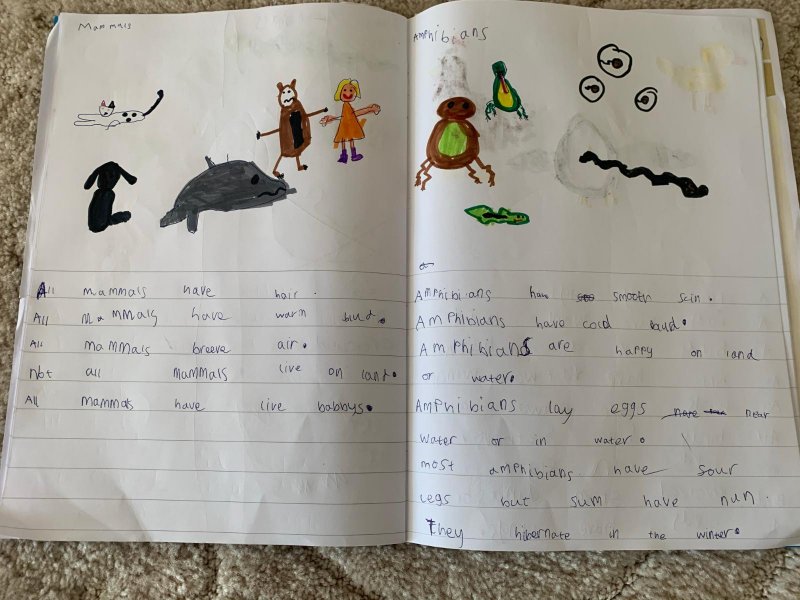 Mammals
All mammals have hair.
All mammals have warm blud.
All mammals breeve air.
not all mammals live on land.
All mammals have live babbys.
AMPhibians
AMPhibians have smooth scin.
AMPhibians have cold blud.
AMPhibians are happy on land
or water.
AMPhibians lay eggs near
water or in water.
most amphibians have sour
legs but sum have nun.
They hibernate in the winter.